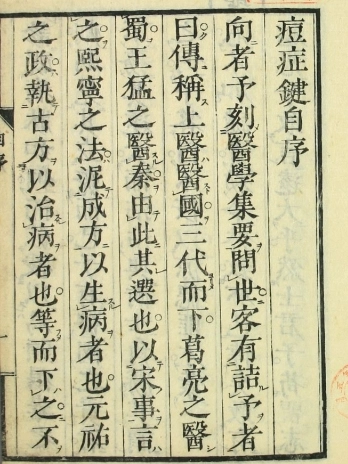 痘症鍵自序
向者予刻醫學集要問世客有詰予者
曰傳稱上醫醫國三代而下葛亮之醫
蜀王猛之醫秦由此其選也以宋事言
之熙寧之法泥成方以生病者也元祐
之政執古方以治病者也等而下之不